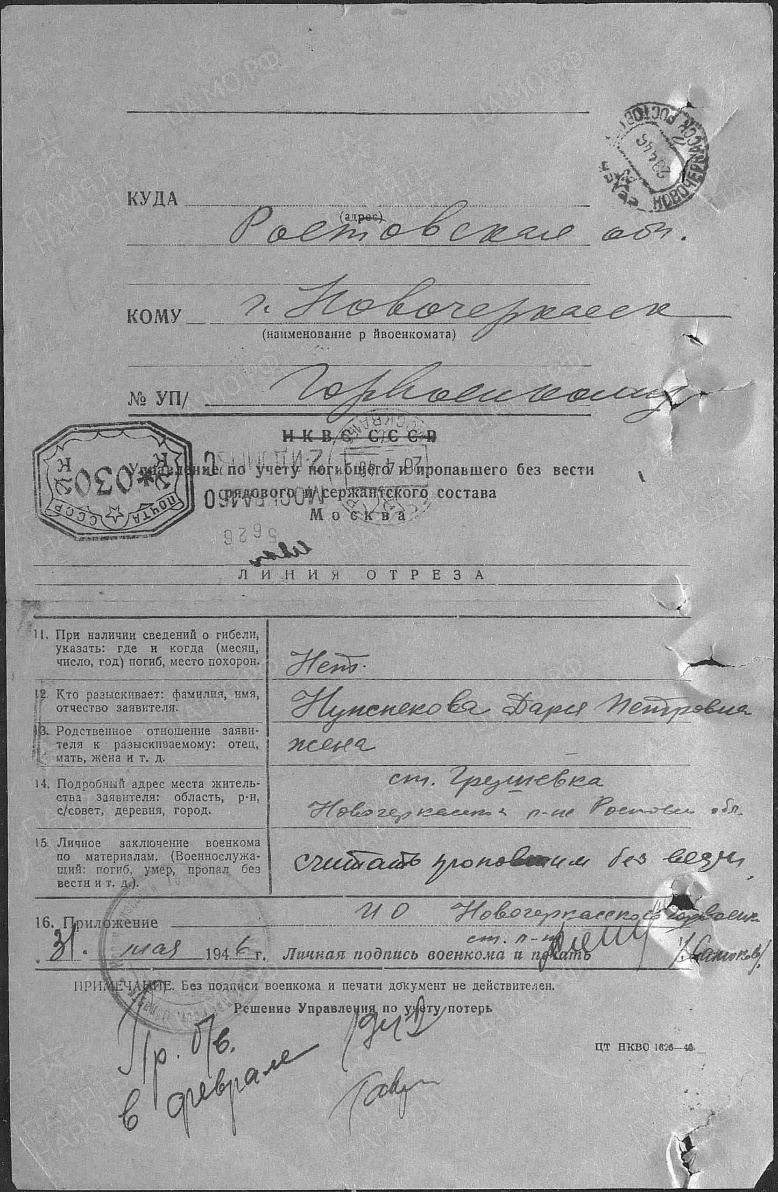 НОВОЧЕРКАССК РОСТОВ
КУДА
(адрес)
Ростовская обл.
КОМУ г. Новочеркасск
(наименование р йвоенкомата)
№ УП/ Горвоенкому
НКВС СССР
Управление по учету погибшего и пропавшего без вести
рядового и сержантского состава
Москва
ПОЧТА СССР
К 030 К
МОСКВА 60
5626
ЛИНИЯ ОТРЕЗА
11. При наличии сведений о гибели,
указать: где и когда (месяц,
число, год) погиб, место похорон.
Нет.
12. Кто разыскивает: фамилия, имя,
отчество заявителя.
Дарья Петровна
13. Родственное отношение заяви-
теля к разыскиваемому: отец,
мать, жена и т. д.
жена
14. Подробный адрес места житель-
ства заявителя: область, р-н,
с/совет, деревня, город.
ст. Грушевка
Новочеркасск р-не Ростовск обл.
15. Личное заключение военкома
по материалам. (Военнослужа-
щий: погиб, умер, пропал без
вести и т. д.).
считать пропавшим без вести
16. Приложение
ИО Новочеркасского Горвоенк
31. мая 1946 г. Личная подпись военкома и печать
ПРИМЕЧАНИЕ. Без подписи военкома и печати документ не действителен.
Решение Управления по учету потерь
Пр. б/в.
в феврале
ЦТ НКВС 1626—46